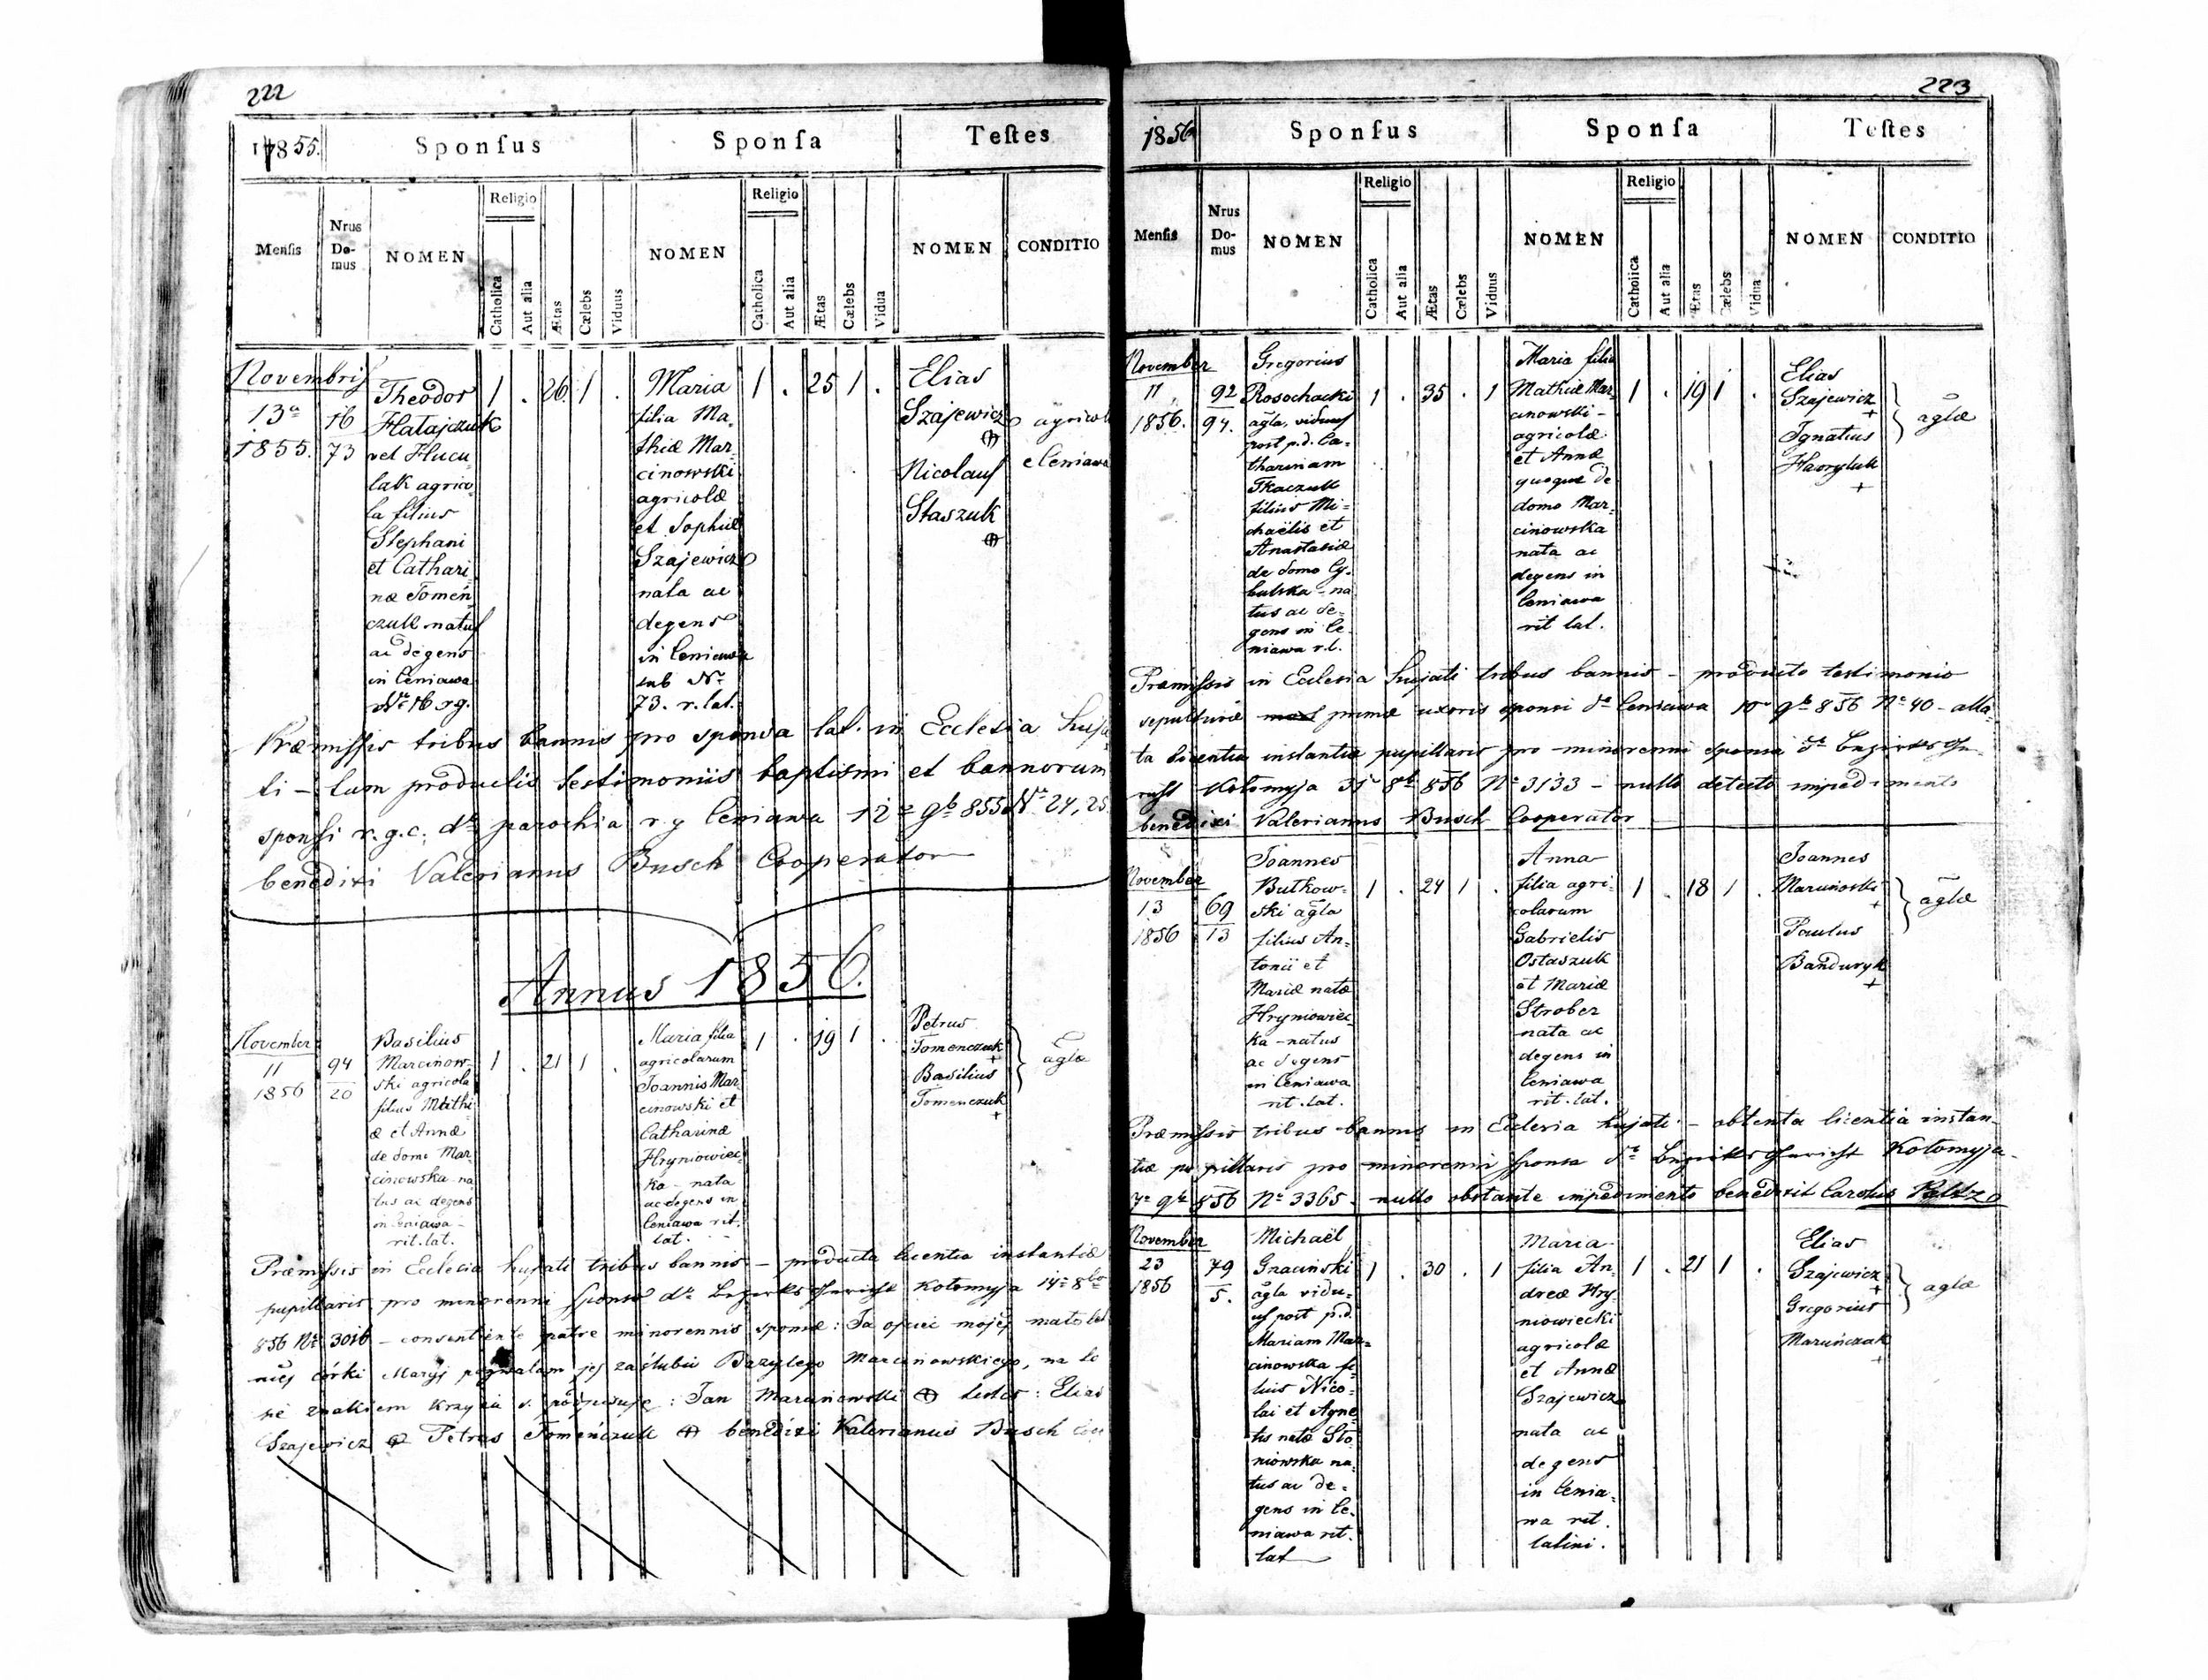 222
17855.
Sponsus
Sponsa
Testes
Mensis
Nrus Do- mus
NOMEN
Religio
Catholica
Aut alia
Ætas
Cælebs
Viduus
NOMEN
Religio
Catholica
Aut alia
Ætas
Cælebs
Vidua
NOMEN
CONDITIO
Novembris
13a
1855.
16
73
Theodor
Hatajczuk
vel Hucu-
lak agrico-
la filius
Stephani
et Cathari
næ Tomen
czuk natus
ac degens
in Ceniawa
Nr 16 r.g.
1 . 26 1 .
Maria
filia Ma-
thiæ Mar-
cinowski
agricolæ
et Sophiæ
Szajewicz
nata ac
degens
in Ceniawa
sub Nr
73. r. lat.
1 . 25 1 .
Elias
Szajewicz
Nicolaus
Staszuk
agricol
e Ceniawa
Præmissis tribus bannis pro sponsa lat. in Ecclesia huja
ti - tum productis testimoniis baptismi et bannorum
sponsi r.g.c. dto parochia r.g. Ceniawa 12a 9b 855 Nr 24, 25
benedixi Valerianus Busch Cooperator
Annus 1856.
November
11
1856
94
20
Basilius
Marcinow-
ski agricola
filius Mathi
æ et Annæ
de domo Mar-
cinowska na
tus ac degens
in Ceniawa
rit. lat.
1 . 21 1 .
Maria filia
agricolarum
Joannis Mar
cinowski et
Catharinæ
Hryniowiec-
ka - nata
ac degens in
Ceniawa rit.
lat.
1 . 19 1 .
Petrus
Tomenczuk
+
Basilius
Tomenczuk
+
aglæ
Præmissis in Ecclesia hujati tribus bannis - producta licentia instantiæ
pupillaris pro minorenni sponsa dto Bezirks Gericht Kołomyja 14a 8bo
856 Nr 3016 - consentiente patre minorennis sponsæ: Ja ojciec mojej małolet
niej córki Maryi pozwalam jej zaślubić Bazylego Marcinowskiego, na to
się znakiem krzyża s. podpisuję: Jan Marcinowski testes: Elias
Szajewicz Petrus Tomenczuk benedixi Valerianus Busch
223
1856
Sponsus
Sponsa
Testes
Mensis
Nrus Do- mus
NOMEN
Religio
Catholica
Aut alia
Ætas
Cælebs
Viduus
NOMEN
Religio
Catholica
Aut alia
Ætas
Cælebs
Vidua
NOMEN
CONDITIO
November
11
1856.
92
94.
Gregorius
Rosochacki
agla, viduus
post p.d. Ca-
tharinam
Tkaczuk
filius Mi-
chaëlis et
Anastasiæ
de domo Cy-
bulska - na
tus ac de-
gens in Ce-
niawa r.l.
1 . 35 . 1
Maria filia
Mathiæ Mar-
cinowski -
agricolæ
et Annæ
quoque de
domo Mar-
cinowska
nata ac
degens in
Ceniawa
rit lat.
1 . 19 1 .
Elias
Szajewicz
+
Ignatius
Hawryluk
+
aglæ
Præmissis in Ecclesia hujati tribus bannis - producto testimonio
sepulturæ primæ uxoris sponsi dto Ceniawa 10 9b 856 Nr 40 - alla-
ta licentia instantiæ pupillaris pro minorenni sponsa dto Bezirks Ge-
richt Kołomyja 31 8b 856 Nr 3133 - nullo detecto impedimento
benedixi Valerianus Busch Cooperator
November
13
1856
69
13
Joannes
Butkow-
ski agla
filius An-
tonii et
Mariæ natæ
Hryniowiec-
ka - natus
ac degens
in Ceniawa
rit. lat.
1 . 24 1 .
Anna
filia agri-
colarum
Gabrielis
Ostaszuk
et Mariæ
Strober
nata ac
degens in
Ceniawa
rit. lat.
1 . 18 1 .
Joannes
+
Paulus
Banduryk
+
aglæ
Præmissis tribus bannis in Ecclesia hujati - obtenta licentia instan-
tiæ pupillaris pro minorenni sponsa dto Bezirks Gericht Kołomyja
7a 9b 856 Nr 3365 - nullo obstante impedimento benedixit Carolus
November
23
1856
79
5.
Michaël
Gnaciński
agla vidu-
us post p.d.
Mariam Mar-
cinowska fi-
lius Nico-
lai et Agne-
tis natæ Sło-
niowska na-
tus ac de-
gens in Ce-
niawa rit.
lat
1 . 30 . 1
Maria
filia An-
dreæ Hry-
niowiecki
agricolæ
et Annæ
Szajewicz
nata ac
degens
in Cenia-
wa rit.
latini.
1 . 21 1 .
Elias
Szajewicz
+
Gregorius
Maruńczak
+
aglæ